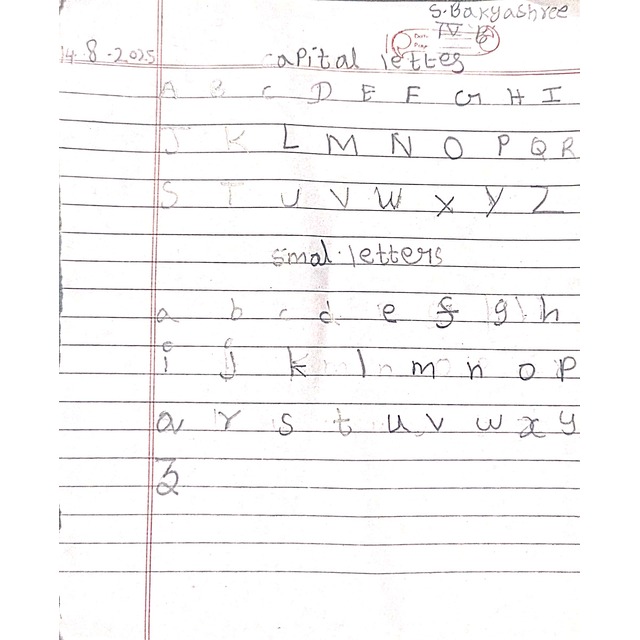 S. Bakyashree
IV B
14-8-2025
capital letters
A B C D E F G H I
J K L M N O P Q R
S T U V W X Y Z
smal letters
a b c d e f g h
i j k l m n o p
q r s t u v w x y
z